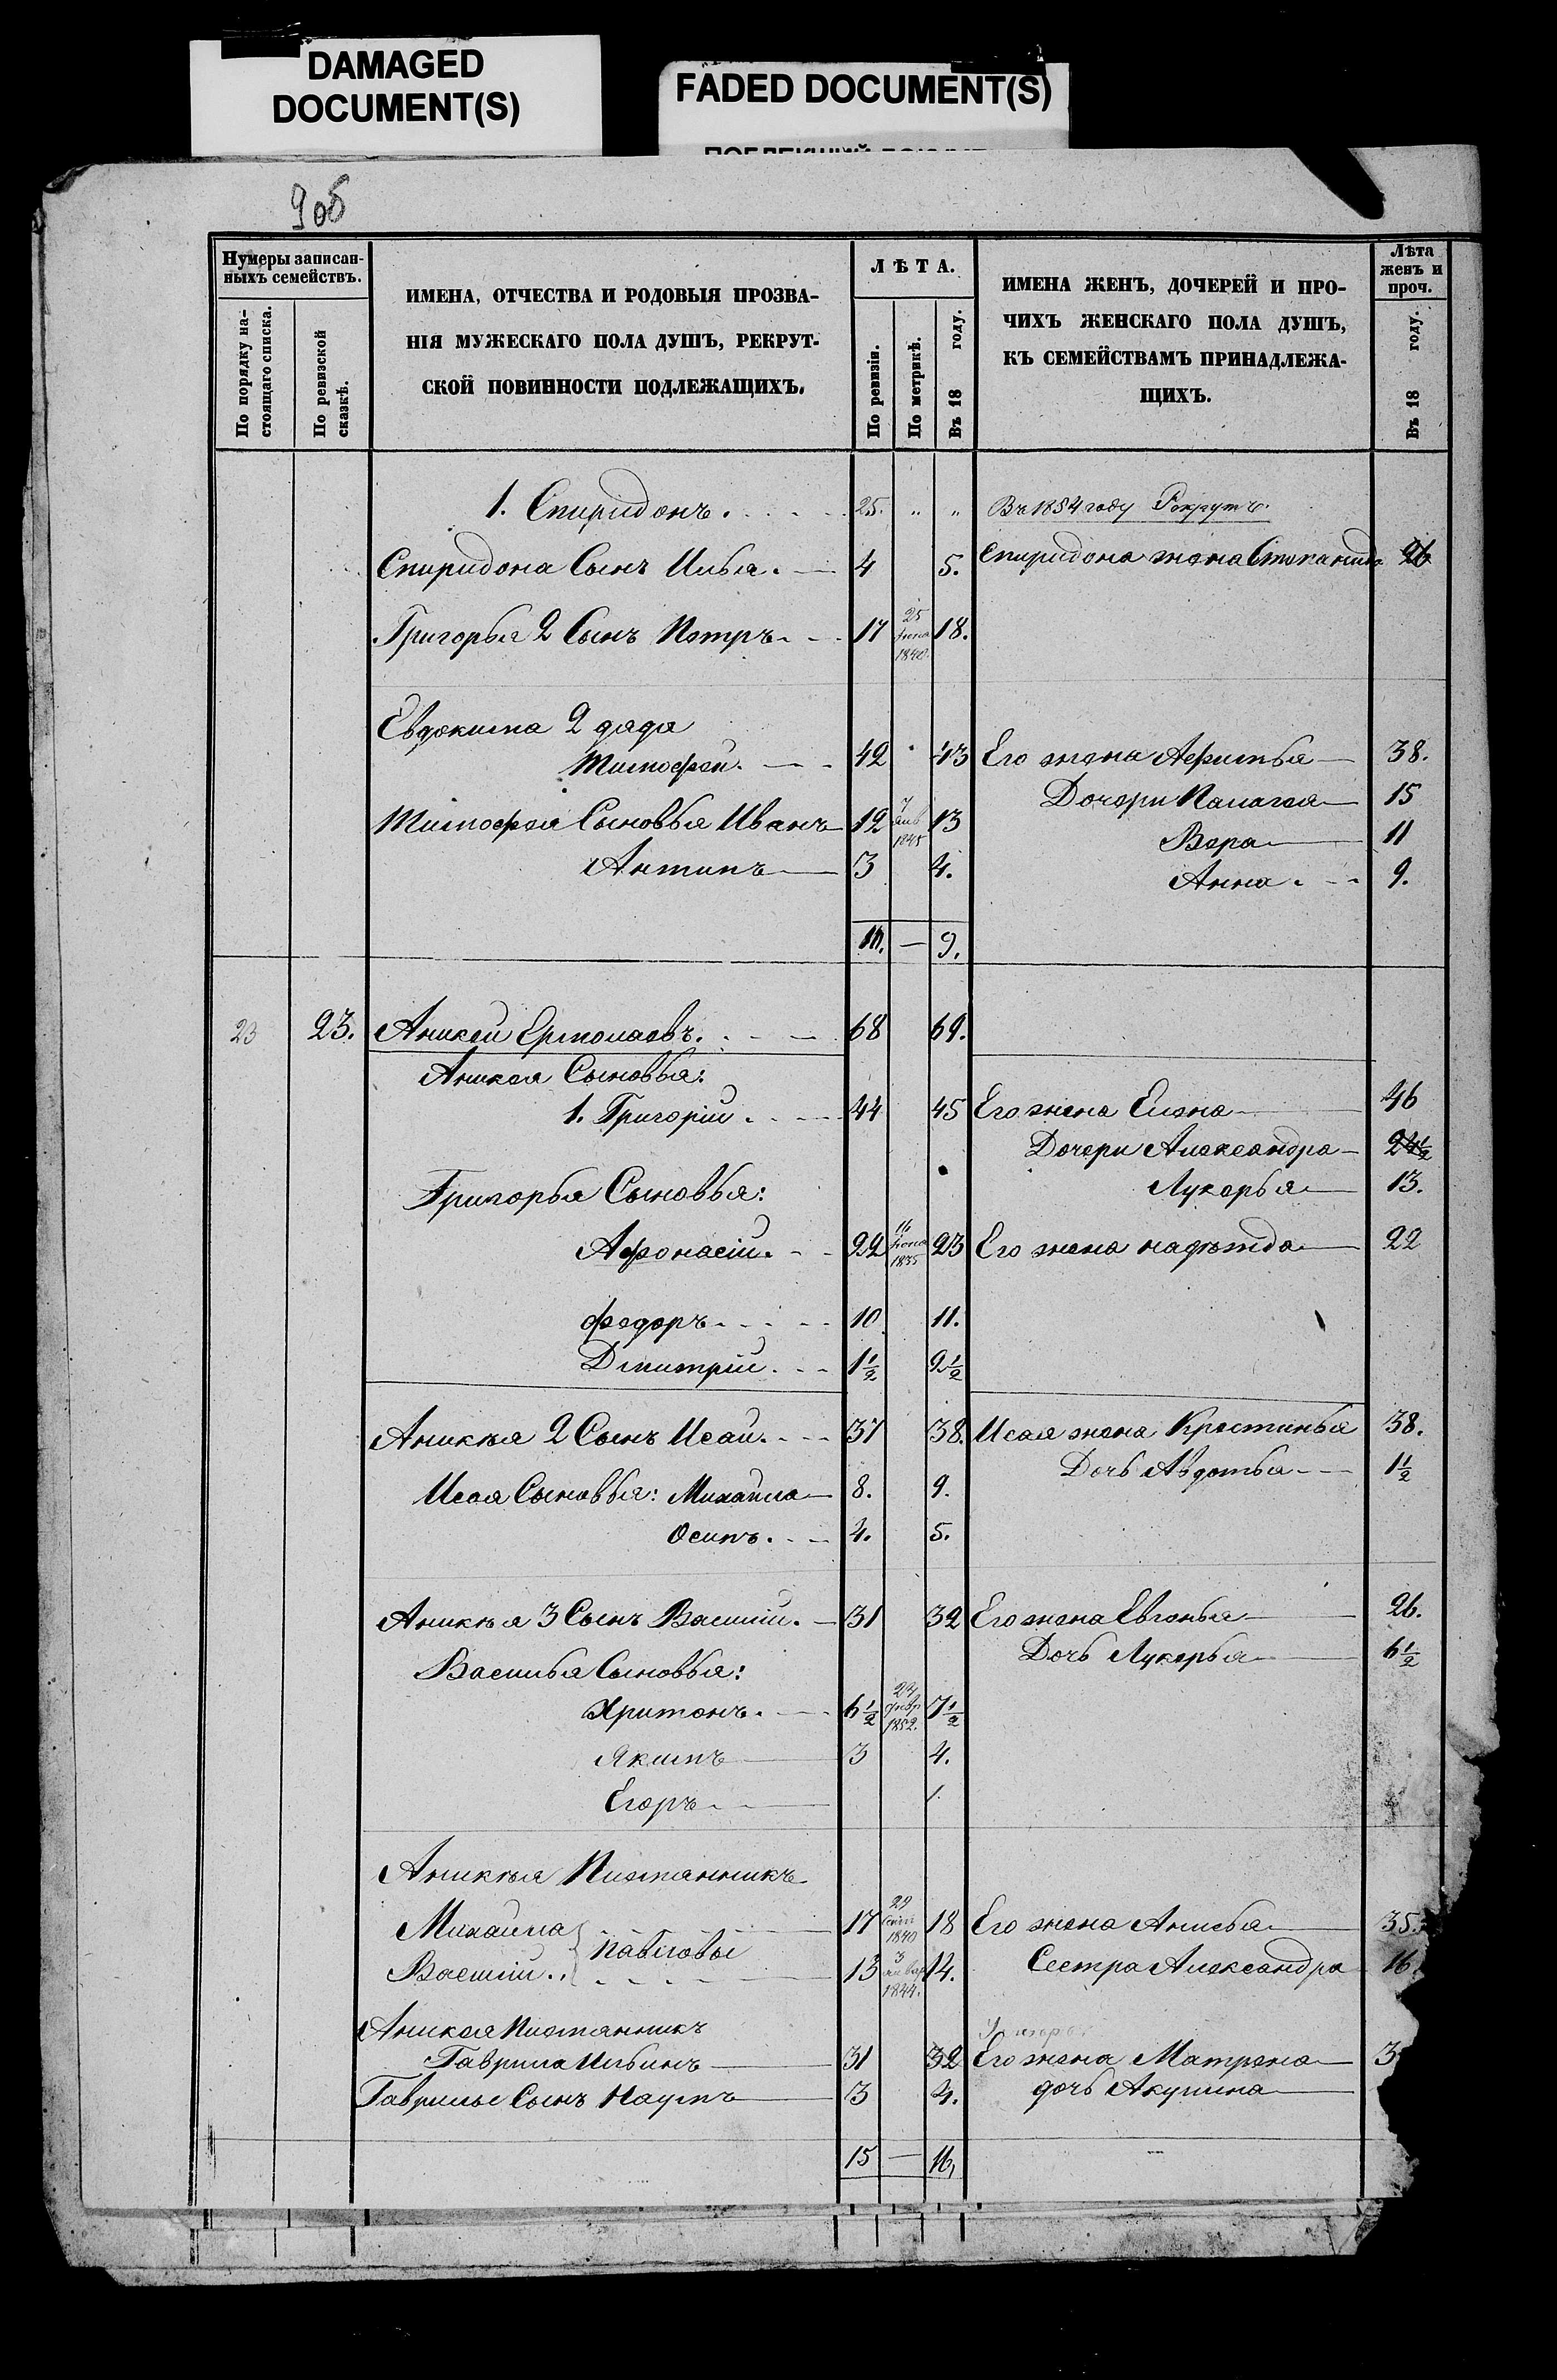 DAMAGED
DOCUMENT(S)
FADED DOCUMENT(S)
9об
Нумеры записан-
ныхъ семействъ.
По порядку на-
стоящаго списка.
По ревизской
сказкѣ.
ИМЕНА, ОТЧЕСТВА И РОДОВЫЯ ПРОЗВА-
НІЯ МУЖЕСКАГО ПОЛА ДУШЪ, РЕКРУТ-
СКОЙ ПОВИННОСТИ ПОДЛЕЖАЩИХЪ.
ЛѢТА.
По ревизіи.
По метрикѣ.
Въ 18 году.
ИМЕНА ЖЕНЪ, ДОЧЕРЕЙ И ПРО-
ЧИХЪ ЖЕНСКАГО ПОЛА ДУШЪ,
КЪ СЕМЕЙСТВАМЪ ПРИНАДЛЕЖА-
ЩИХЪ.
Лѣта
женъ и
проч.
Въ 18 году.
1. Спиридонъ. 25. " " Въ 1854 году Рекрутъ.
Спиридона Сынъ Илья. 4 5. Спиридона жена Степанида 26
Григорья 2 Сынъ Петръ 17 25 Іюня 1840 18.
Евдокима 2 дядя
Тимофей. 42 43 Его жена Афимья 38.
Дочери Палагея 15
Тимофея Сыновья Иванъ 12 7 Янв 1845 13
Вера 11
Антипъ 3 4.
Анна. 9.
— 9.
23 23. Аникей Ермолаевъ. 68 69.
Аникея Сыновья:
1. Григорій. 44 45 Его жена Елена 46
Дочери Александра
Григорья Сыновья: Лукерья 13.
Афонасій. 22 1835 23 Его жена надежда 22
Федоръ 10 11.
Дмитрій. 1½ 2½
Аникея 2 Сынъ Исай. 37 38. Исая жена Крестинья 38.
Дочь Авдотья 1½
Исая Сыновья: Михайла 8. 9.
Осипъ. 4. 5.
Аникея 3 Сынъ Василій. 31 32 Его жена Евгенья 26.
Дочь Лукерья 6½
Василья Сыновья:
Харитонъ. 6½ 24 февр 1852. 7½
Якимъ 3 4.
Егоръ 1.
Аникея Племянникъ
Михайла 17 29 1840 18 Его жена Анисья 35.
Павловы
Василій.. 13 3 Январ 1844. 14. Сестра Александра 16
Аникея Племянникъ
Гаврила Ильинъ 31 32 Его жена Матрена 3
Гаврилы Сынъ Наумъ 3 4. дочь Акулина
15 — 16,